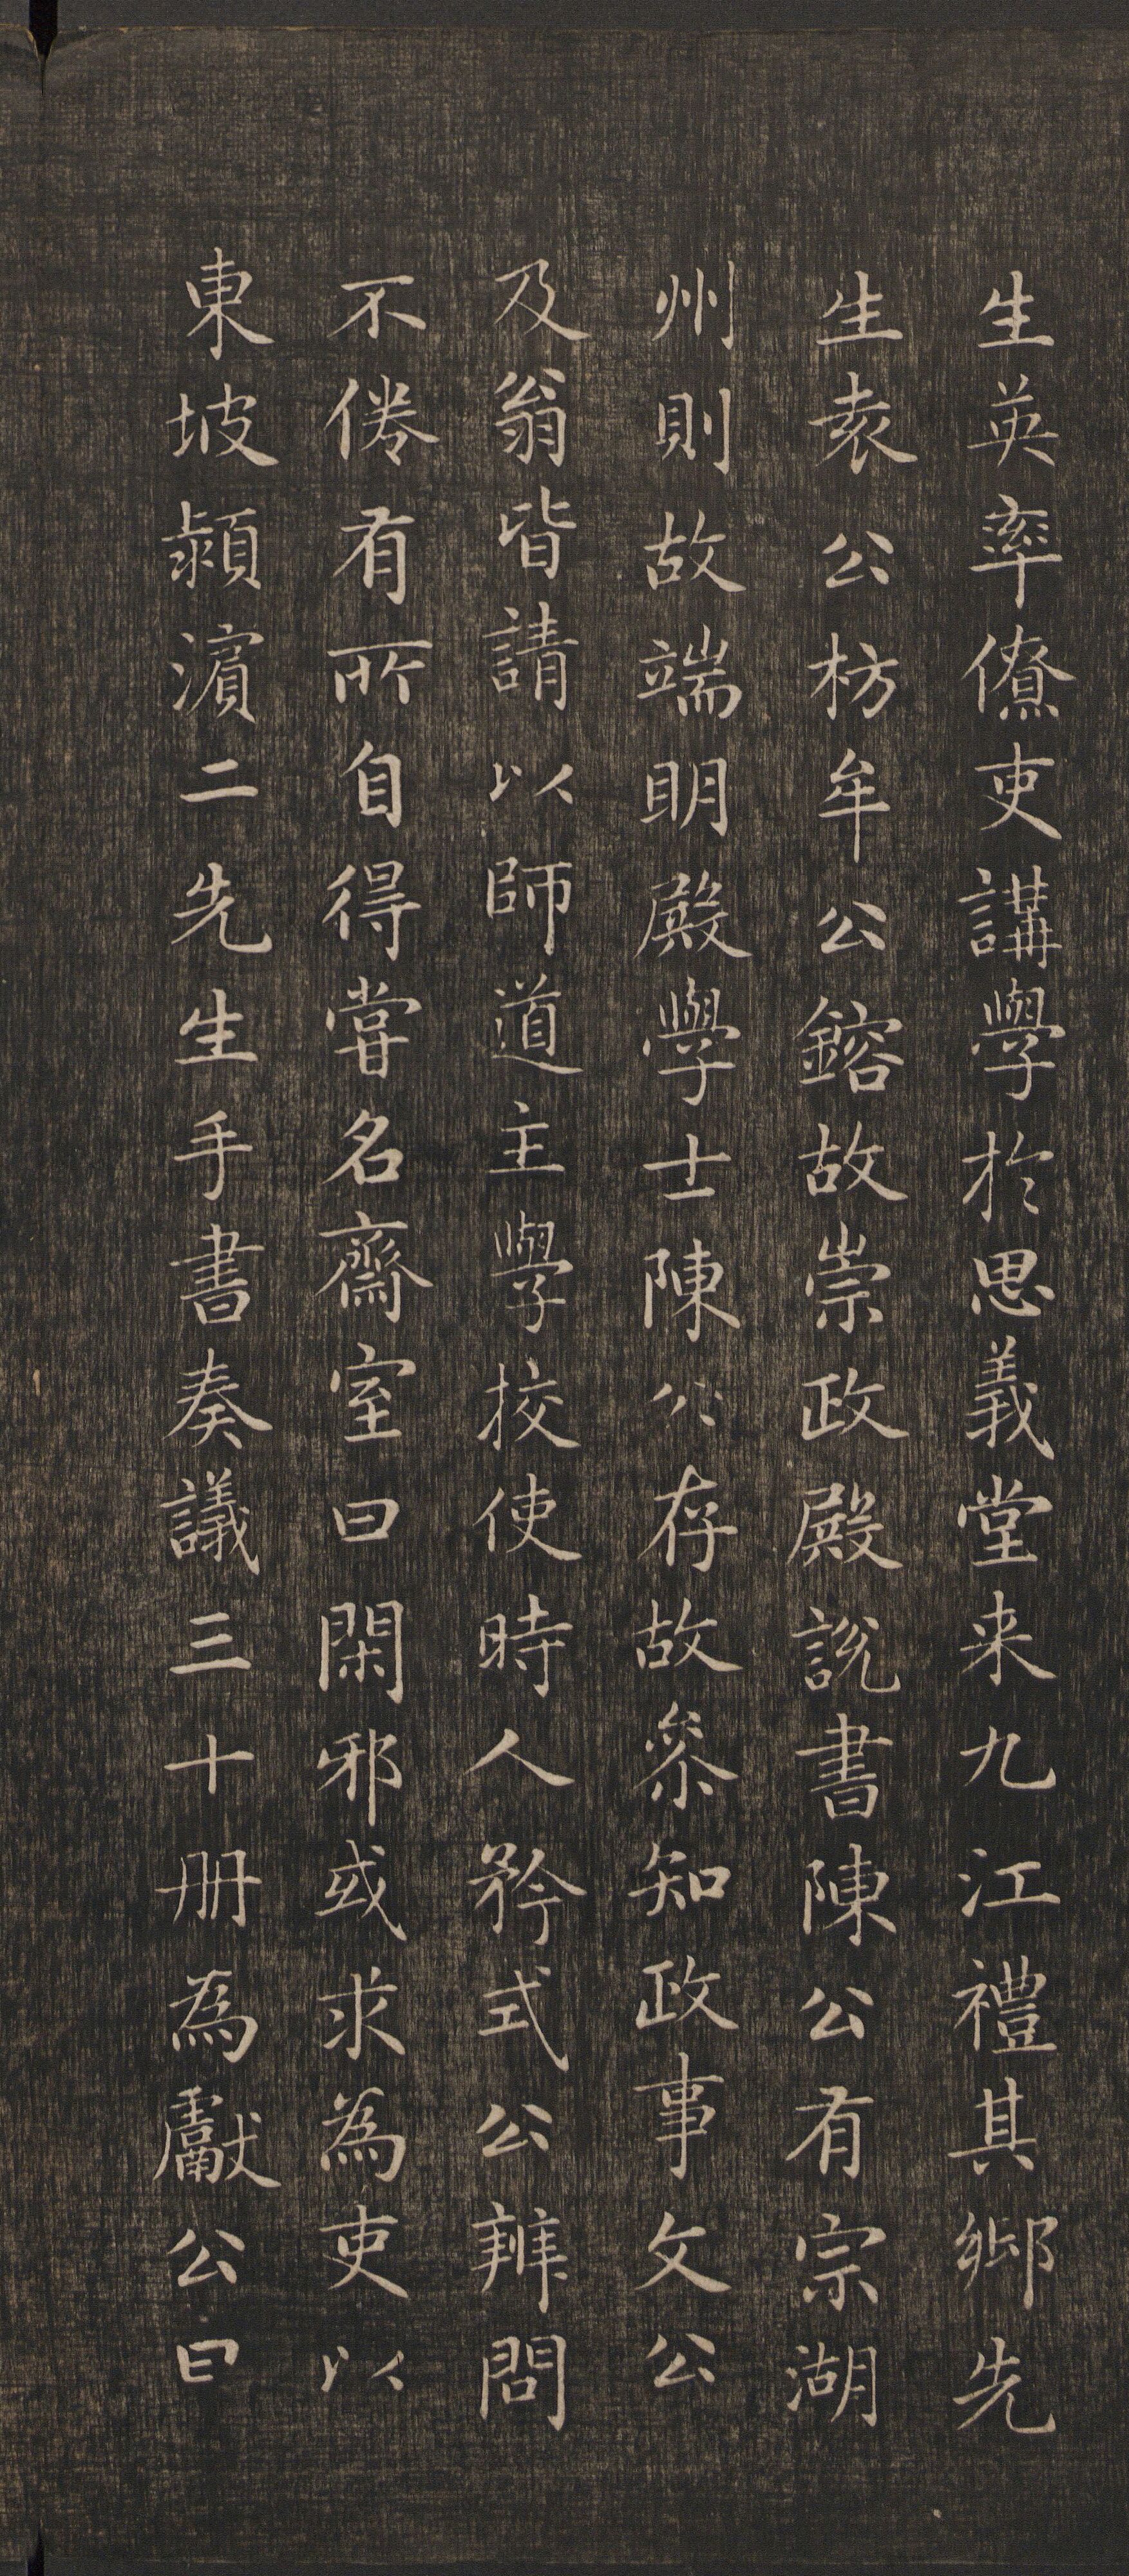 生英率僚吏講學於思義堂来九江禮其鄉先
生袁公枋牟公鎔故崇政殿說書陳公有宗湖
州則故端明殿學士陳公存故叅知政事文公
及翁皆請以師道主學挍使時人矜式公辨問
不倦有所自得甞名齋室曰閑邪或求為吏以
東坡潁濵二先生手書奏議三十册為獻公曰